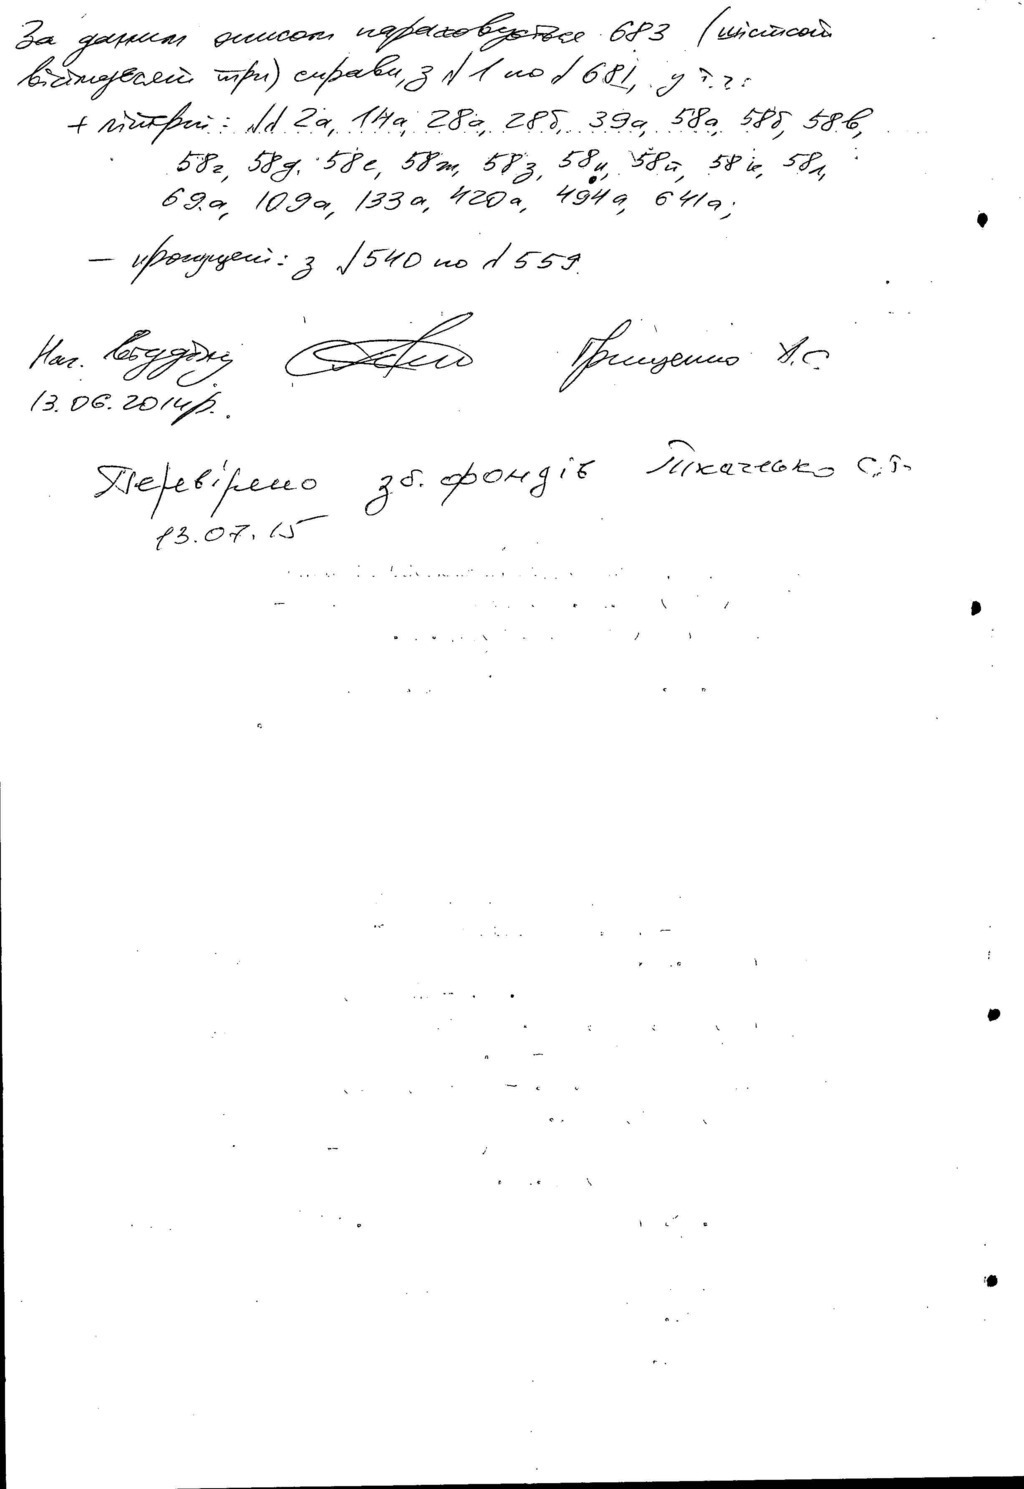 За даним описом нараховується 683 (шістсот
вісімдесят три) справи, з № 1 по № 681, у т.ч:
+ літерні: №№ 2а, 14а, 28а, 28б, 39а, 58а, 58б, 58в,
58г, 58д, 58е, 58ж, 58з, 58и, 58й, 58к, 58л,
69а, 109а, 133а, 420а, 494а, 641а;
— пропущені: з № 540 по № 559.
Нач. відділу Грищенко
13.06.2014р.
Перевірено зб. фондів Ткаченко С.
13.07.15